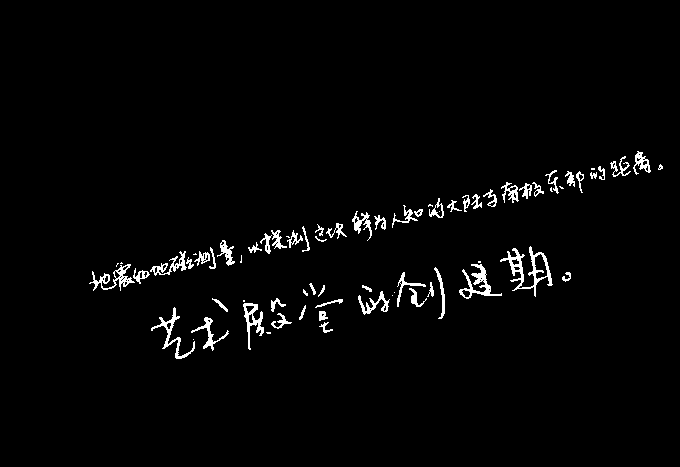 地震和地磁测量，以探测这块鲜为人知的大陆与南极东部的距离。
艺术殿堂的创建期。